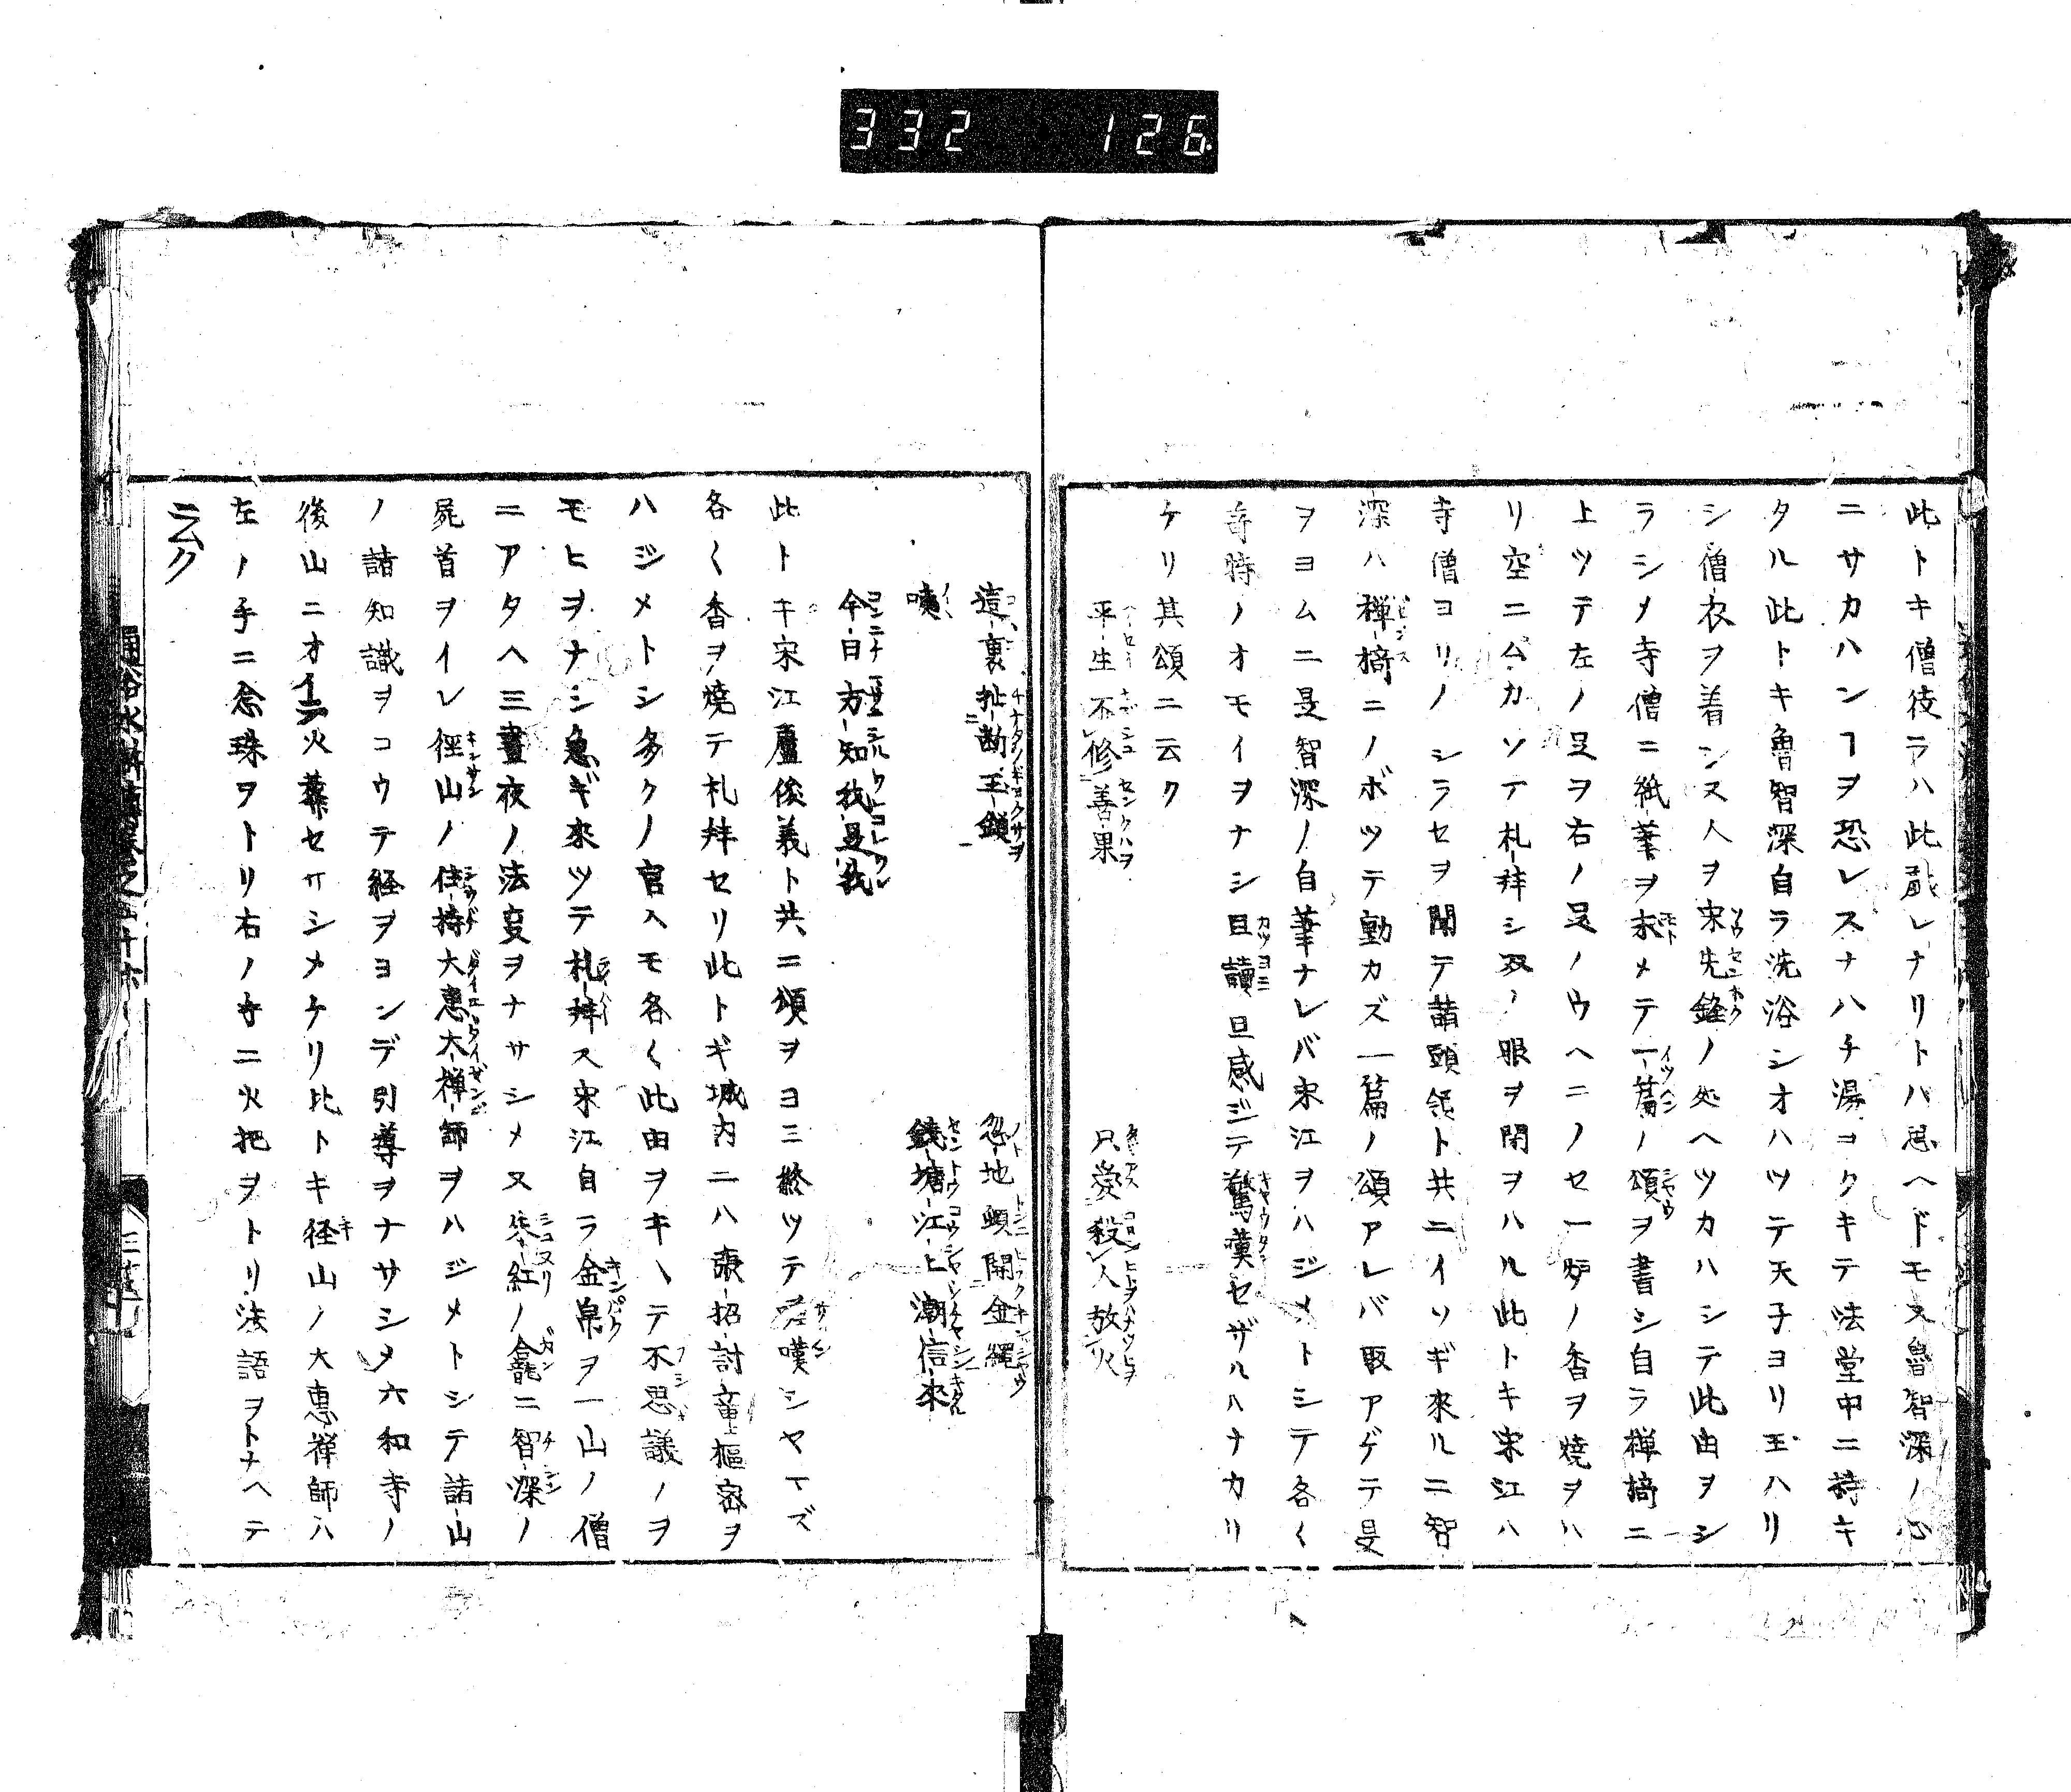 332 126
此トキ僧徒ラハ此戯レナリトハ思ヘドモ又魯智深ノ心
ニサカハンヿヲ恐レスナハチ湯ヲワキテ法堂中ニ持キ
タル此トキ魯智深自ラ洗浴シオハツテ天子ヨリ玉ハリ
シ僧衣ヲ着シ又人ヲ宋先鋒ノ処ヘツカハシテ此由ヲシ
ラシメ寺僧ニ紙筆ヲ求メテ一篇ノ頌ヲ書シ自ラ禅椅ニ
上ツテ左ノ足ヲ右ノ足ノウヘニノセ一炉ノ香ヲ焼ヲハ
リ空ニムカツテ礼拝シ双ノ眼ヲ閉ヲハル此トキ宋江ハ
寺僧ヨリノシラセヲ聞テ諸頭領ト共ニイソギ來ルニ智
深ハ禅椅ニノボツテ動カズ一篇ノ頌アレバ取アゲテ是
ヲヨムニ是智深ノ自筆ナレバ宋江ヲハジメトシテ各〱
奇特ノオモイヲナシ且讀且感ジテ驚嘆セザルハナカリ
ケリ其頌ニ云ク
平生不修善果 只愛殺人放火
忽地頓開金繩 這裏扯断玉鎖
咦 錢塘江上潮信來
今日方知我是我
此トキ宋江盧俊義ト共ニ頌ヲヨミ終ツテ嘆シヤマズ
各〱香ヲ焼テ礼拝セリ此トギ城内ニハ張招討童樞密ヲ
ハジメトシ多クノ官人モ各〱此由ヲキヽテ不思議ノヲ
モヒヲナシ急ギ來ツテ礼拝ス宋江自ラ金帛ヲ一山ノ僧
ニアタヘ三晝夜ノ法事ヲナサシメ又朱紅ノ龕ニ智深ノ
屍首ヲイレ径山ノ住持大惠大禅師ヲハジメトシテ諸山
ノ諸知識ヲコウテ経ヲヨンデ引導ヲナサシメ六和寺ノ
後山ニオイテ火葬セサシメケリ此トキ径山ノ大惠禅師ハ
左ノ手ニ念珠ヲトリ右ノ手ニ火把ヲトリ法語ヲトナヘテ
云ク